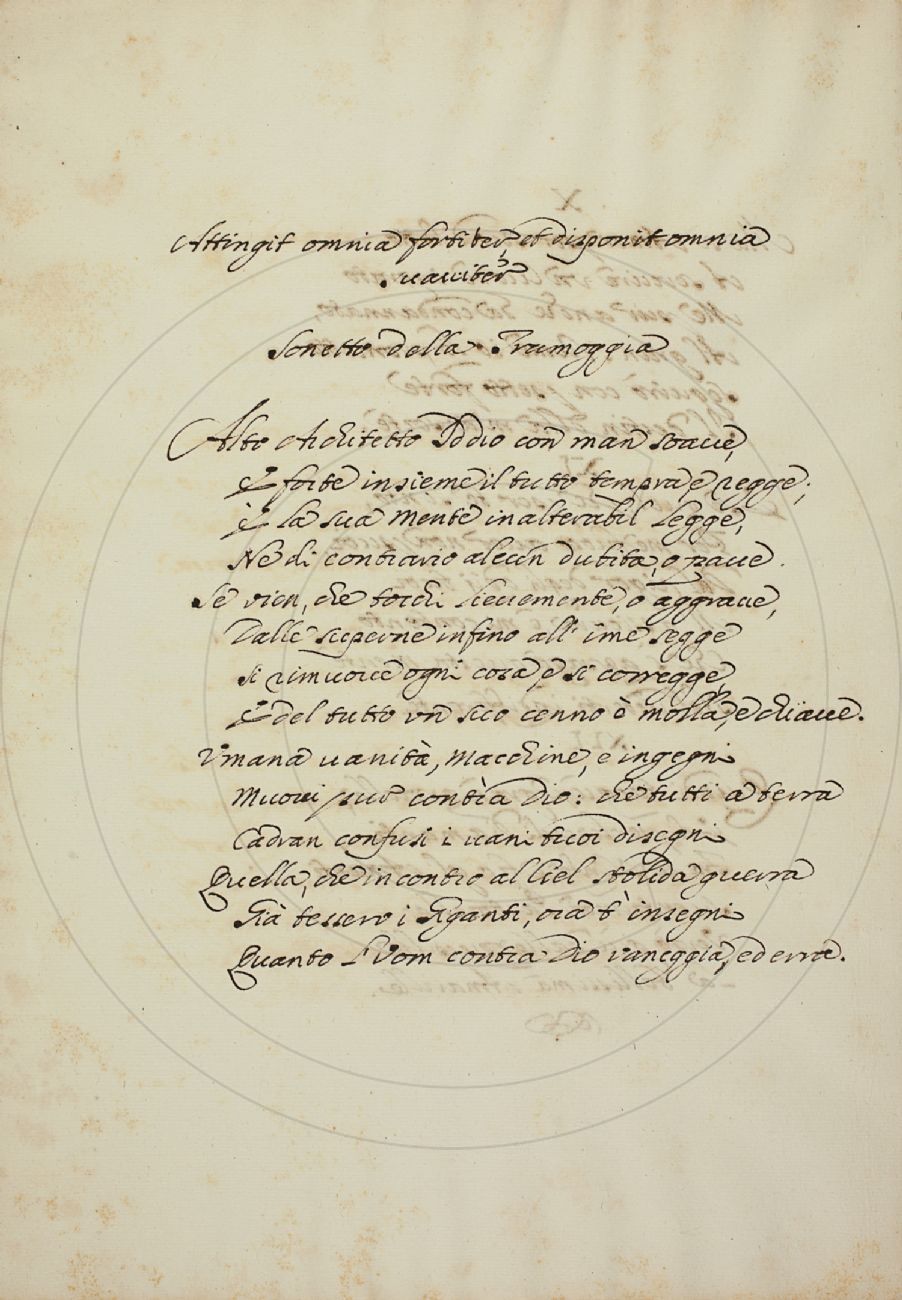 Attingit omnia fortiter, et disponit omnia
suauiter
Sonetto della Tramoggia
Alto Architetto Iddio con man soaue,
E forte insieme il tutto tempra, e regge;
E la sua mente inalterabil legge,
Ne di contrario alcun dubita, o paue.
Se vien, che tocchi lieuemente, o aggraue,
Dalle superne infino all' ime segge
Si rimuoue ogni cosa, e si corregge,
E del tutto vn suo cenno è molla, e chiaue.
Vmana uanità, macchine, e ingegni
Muoui pur contra Dio: che tutti a terra
Cadran confusi i uani tuoi disegni
Quella, che incontro al Ciel stolida guerra
Già tessero i Giganti, ora t' insegni
Quanto l Vom contra Dio vaneggia, ed erra.